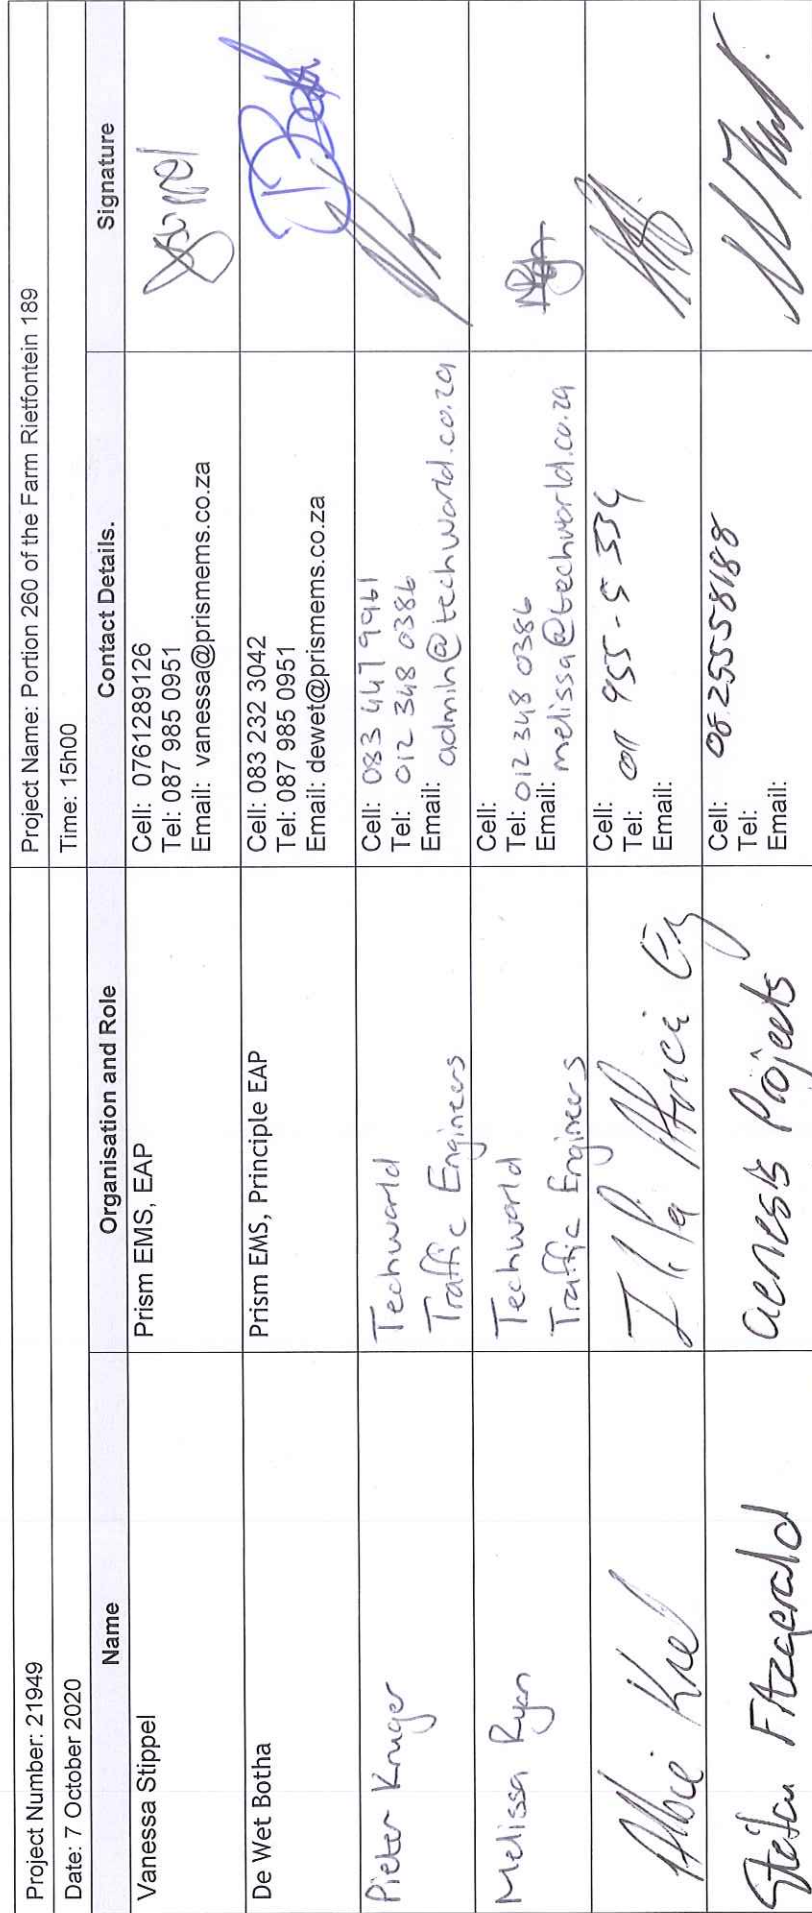 Project Number: 21949
Project Name: Portion 260 of the Farm Rietfontein 189
Date: 7 October 2020
Time: 15h00
Name
Organisation and Role
Contact Details.
Signature
Vanessa Stippel
Prism EMS, EAP
Cell: 0761289126
Tel: 087 985 0951
Email: vanessa@prismems.co.za
De Wet Botha
Prism EMS, Principle EAP
Cell: 083 232 3042
Tel: 087 985 0951
Email: dewet@prismems.co.za
Pieter Kruger
Techworld
Traffic Engineers
Cell: 083 447 9961
Tel: 012 348 0386
Email: admin@techworld.co.za
Melissa Ryan
Techworld
Traffic Engineers
Cell:
Tel: 012 348 0386
Email: melissa@techworld.co.za
Cell:
Tel: 011 955-5 334
Email:
Stefan Fitzgerald
Genesis Projects
Cell: 0825558188
Tel:
Email: